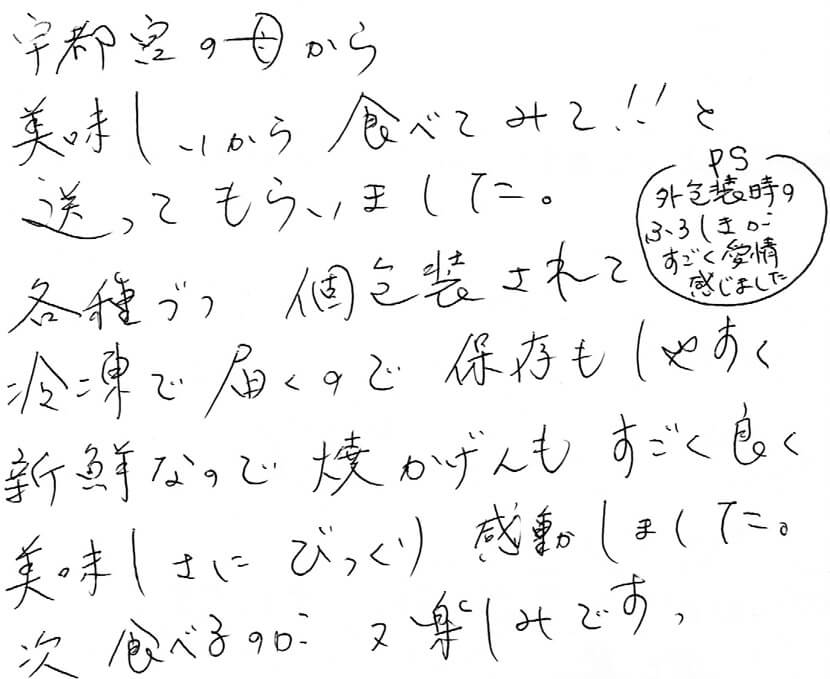 宇都宮の母から
美味しいから 食べてみて!!と
送ってもらいました。
各種づつ 個包装されて
冷凍で届くので 保存もしやすく
新鮮なので 焼かげんも すごく良く
美味しさに びっくり 感動しました。
次 食べるのが 又楽しみです、
PS
外包装時の
ふろしきが
すごく愛情
感じました